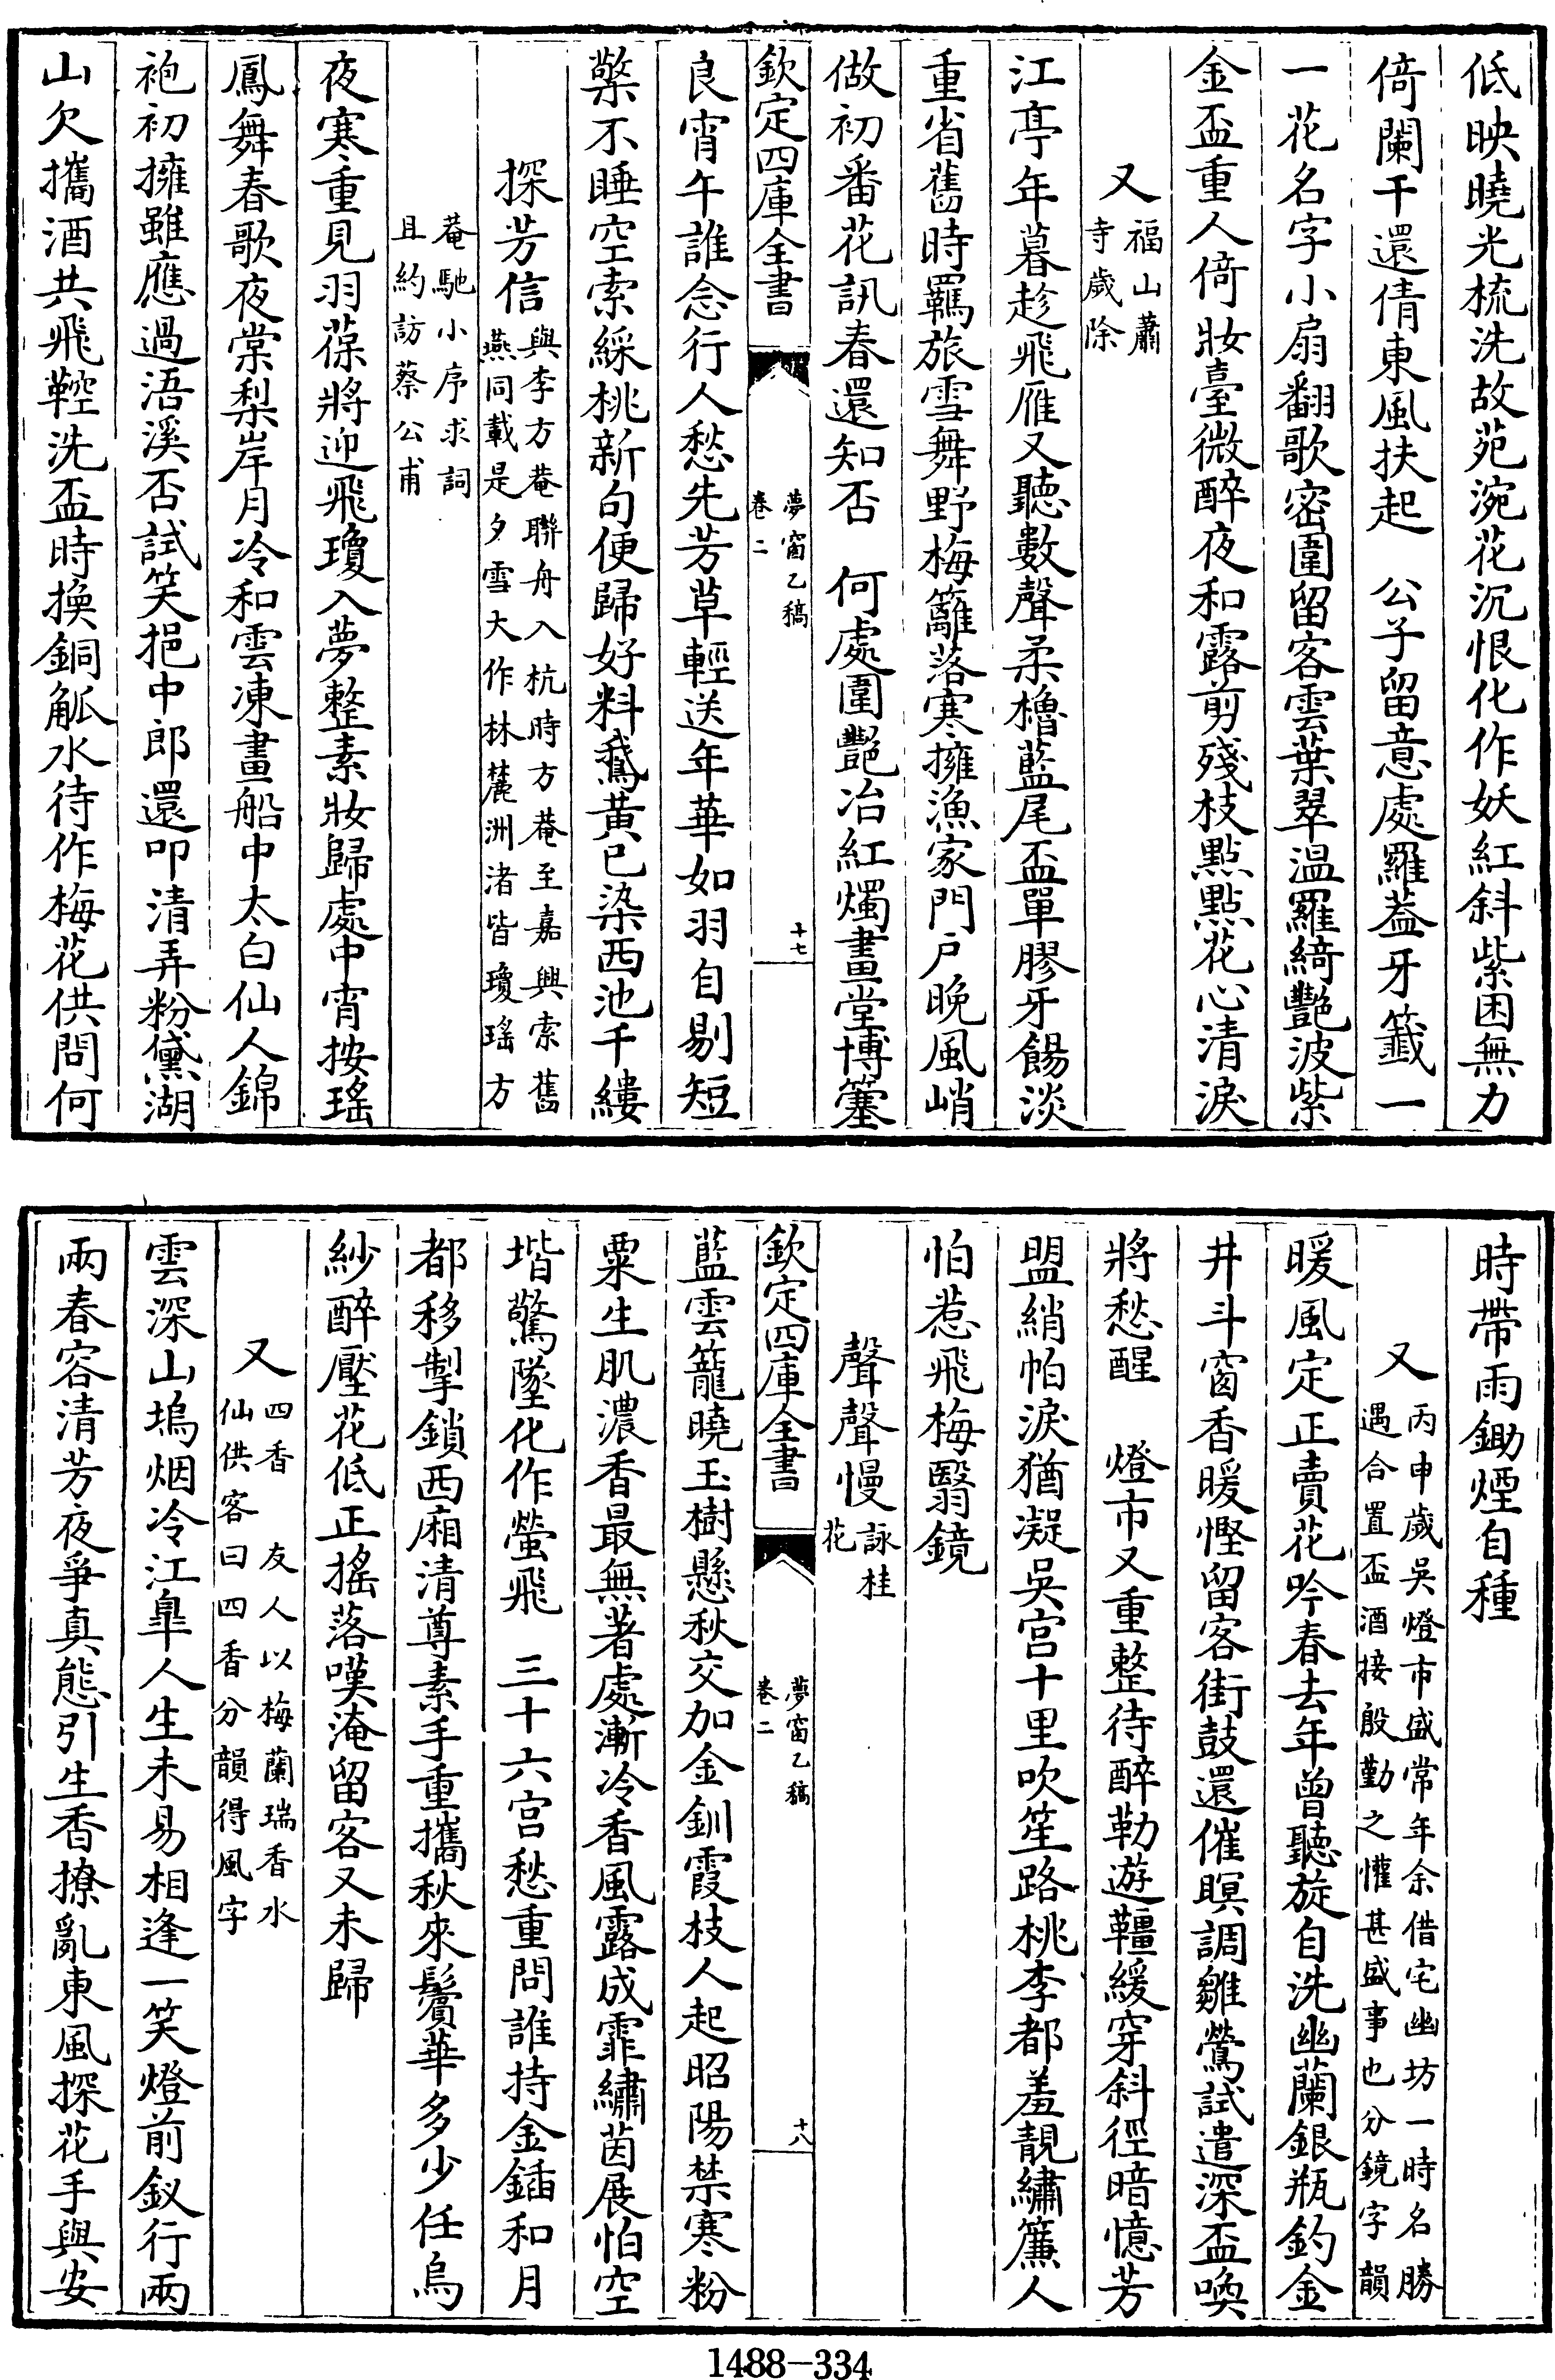 低映曉光梳洗故苑涴花沉恨化作妖紅斜紫困無力
倚闌干還倩東風扶起　公子留意處羅葢牙籖一
一花名字小扇翻歌密圍留客雲葉翠温羅綺艷波紫
金盃重人倚妝臺微醉夜和露剪殘枝點點花心清淚
又福山蕭
寺歲除
江亭年暮趁飛雁又聽數聲柔櫓藍尾盃單膠牙餳淡
重省舊時羈旅雪舞野梅籬落寒擁漁家門戶晚風峭
做初番花訊春還知否　何處圍艷冶紅燭畫堂博簺
欽定四庫全書
夢窗乙稿
卷二
十七
良宵午誰念行人愁先芳草輕送年華如羽自剔短
檠不睡空索綵桃新句便歸好料鵞黃已染西池千縷
探芳信與李方菴聯舟入杭時方菴至嘉興索舊
燕同載是夕雪大作林麓洲渚皆瓊瑤方
菴馳小序求詞
且約訪蔡公甫
夜寒重見羽葆將迎飛瓊入夢整素妝歸處中宵按瑤
鳳舞春歌夜棠梨岸月冷和雲凍畫船中太白仙人錦
袍初擁雖應過浯溪否試笑挹中郎還叩清弄粉黛湖
山欠攜酒共飛鞚洗盃時換銅觚水待作梅花供問何
時帶雨鋤煙自種
又丙申歲吳燈市盛常年余借宅幽坊一時名勝
遇合置盃酒接殷勤之懽甚盛事也分鏡字韻
暖風定正賣花吟春去年曾聽旋自洗幽蘭銀瓶釣金
井斗窗香暖慳留客街鼓還催暝調雛鶯試遣深盃喚
將愁醒　燈市又重整待醉勒遊韁緩穿斜徑暗憶芳
盟綃帕淚猶凝吳宮十里吹笙路桃李都羞靚繡簾人
怕惹飛梅翳鏡
聲聲慢詠桂
花
欽定四庫全書
夢窗乙稿
卷二
十八
藍雲籠曉玉樹懸秋交加金釧霞枝人起昭陽禁寒粉
粟生肌濃香最無著處漸冷香風露成霏繡茵展怕空
堦驚墜化作螢飛　三十六宮愁重問誰持金鍤和月
都移掣鎖西廂清尊素手重攜秋來鬢華多少任烏
紗醉壓花低正搖落嘆淹留客又未歸
又四香　友人以梅蘭瑞香水
仙供客曰四香分韻得風字
雲深山塢烟冷江臯人生未易相逢一笑燈前釵行兩
兩春容清芳夜爭真態引生香撩亂東風探花手與安
1488—334